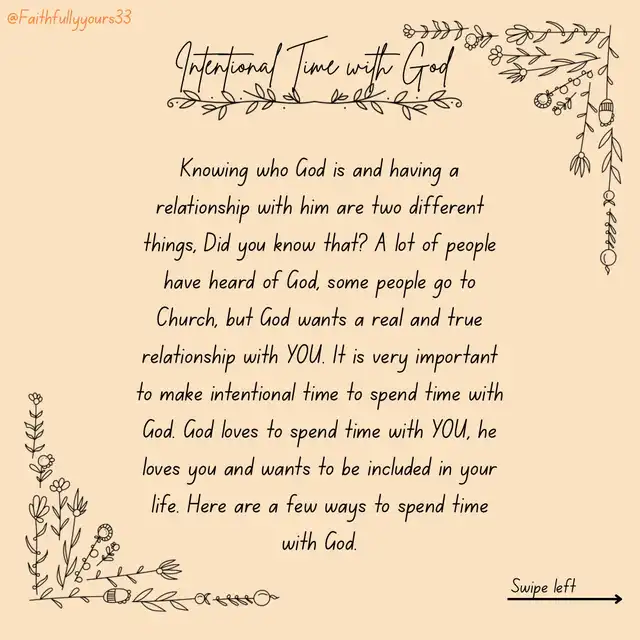 @Faithfullyyours33
Intentional Time with God
Knowing who God is and having a
relationship with him are two different
things, Did you know that? A lot of people
have heard of God, some people go to
Church, but God wants a real and true
relationship with YOU. It is very important
to make intentional time to spend time with
God. God loves to spend time with YOU, he
loves you and wants to be included in your
life. Here are a few ways to spend time
with God.
Swipe left